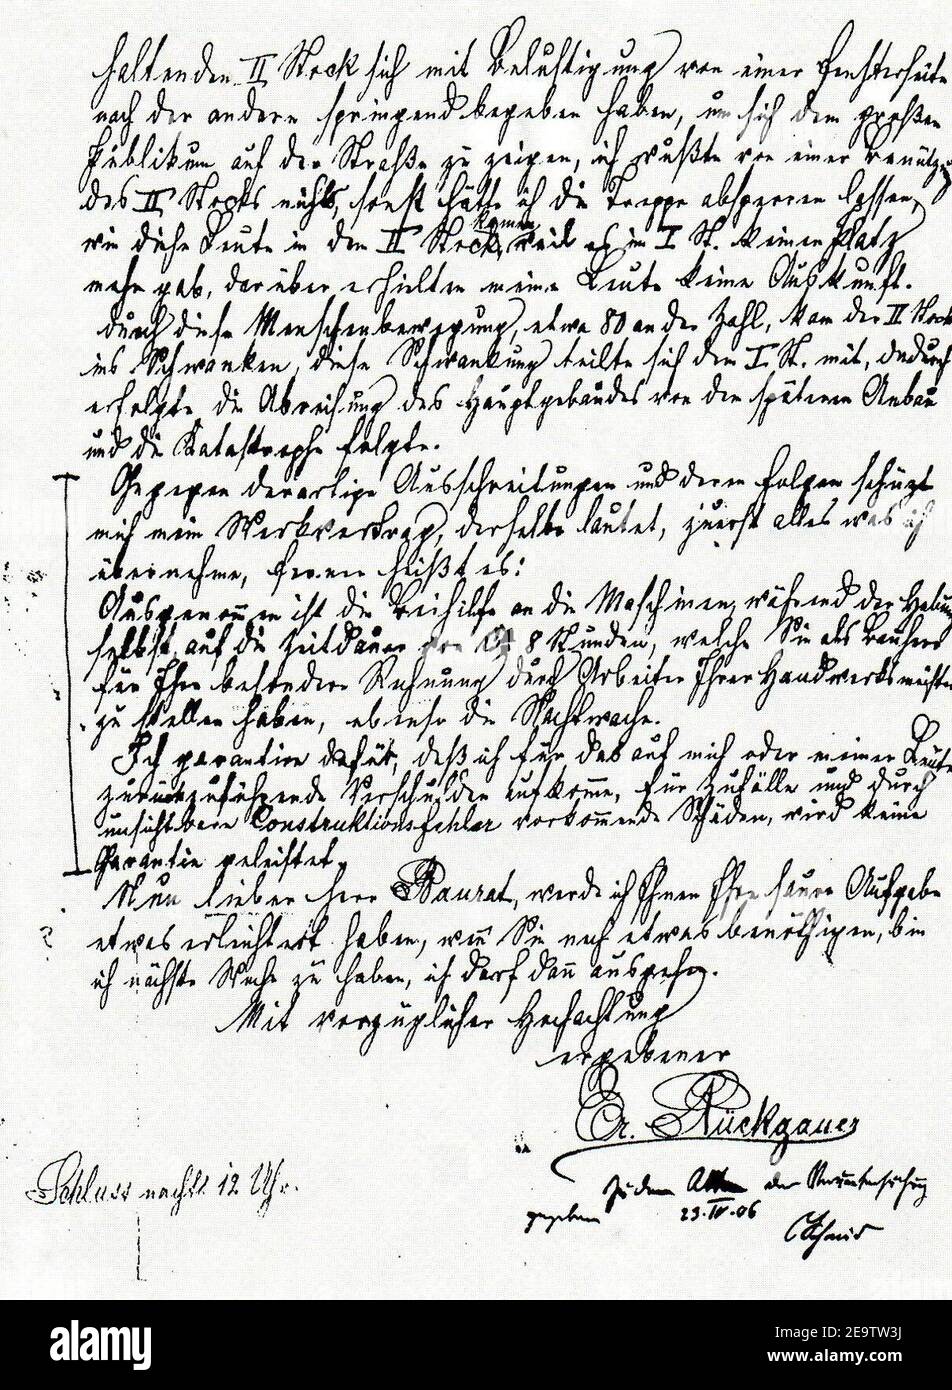 haltenden II Stock sich mit Belustigung von einer Fensterseite
nach der andern springend begeben haben, um sich dem großen
Publikum auf der Straße zu zeigen, ich wußte von einer Benützung
des II Stocks nichts, sonst hätte ich die Treppe absperren lassen,
wie diese Leute in den II Stock kamen, weil es im I St. keinen Platz
mehr gab, darüber erhielten meine Leute keine Auskunft.
durch diese Menschenbewegung, etwa 80 an der Zahl, kam der II Stock
ins Schwanken, diese Schwankung teilte sich dem I St. mit, dadurch
erfolgte die Abreißung des Hauptgebäudes von dem späteren Anbau
und die Katastrophe folgte.
Gegegen derartige Ausschreitungen und deren Folgen schüzt
mich mein Werkvertrag, derselbe lautet, zuerst alles was ich
übernehme, ferner heißt es:
Ausgenommen ist die Beihilfe an die Maschinen, während der Hebung
selbst auf die Zeitdauer von 8 Stunden, welche Sie als Bauherr
für Ihre besondere Rechnung durch Arbeiter Ihrer Handwerksmeister
zu stellen haben, ebenso die Nachtwache.
Ich garantire dafür, daß ich für das auf mich oder meiner Leute
zurückzuführende Verschulden aufkomme, für Zufälle und durch
unsichtbare Construktionsfehler vorkommende Schäden, wird keine
Garantie geleistet.
Nun lieber Herr Baurat, werde ich Ihnen Ihre saure Aufgabe
etwas erleichtert haben, wenn Sie noch etwas benöthigen, bin
ich nächste Woche zu haben, ich darf dann ausgehen.
Mit vorzüglicher Hochachtung
ergebener
Er. Rückgauer
Schluss nachts 12 Uhr.
Zu den Akten der Voruntersuchung
gegeben 23.IV.06
Schmid
alamy
Image ID: 2E9TW3J
www.alamy.com